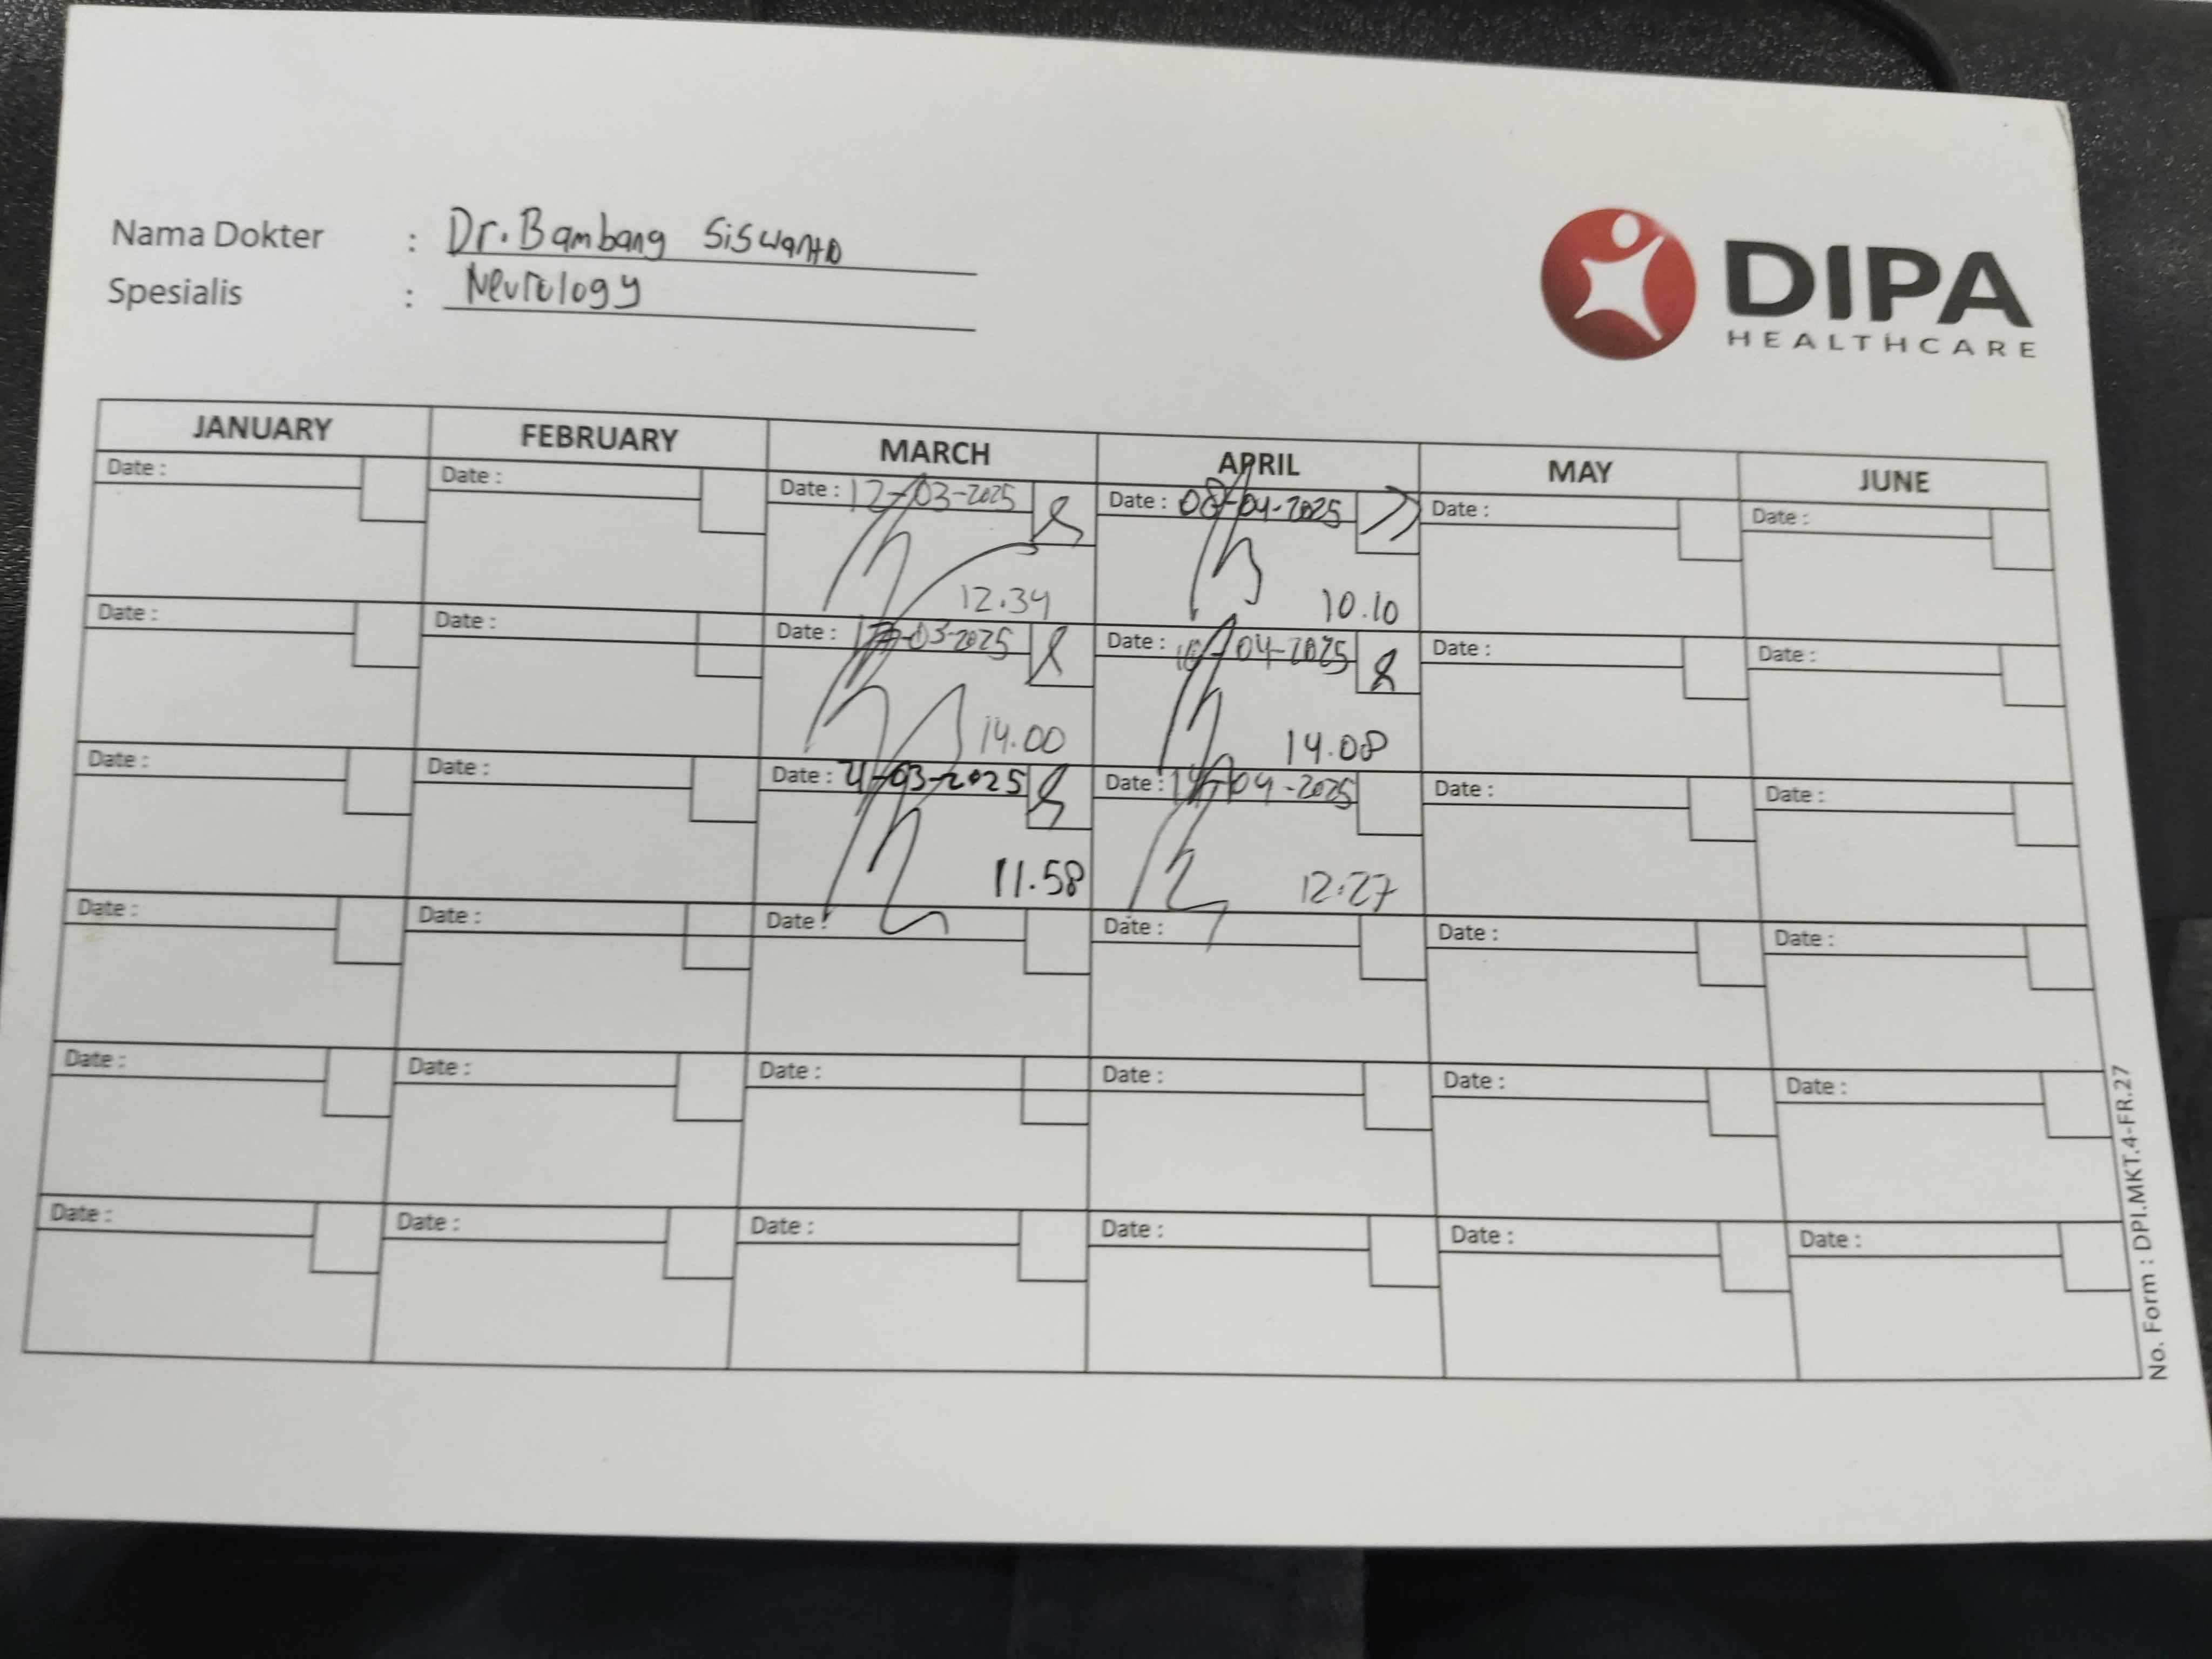 Nama Dokter : Dr. Bambang Siswanto
Spesialis : Neurology
DIPA
HEALTHCARE
JANUARY FEBRUARY MARCH APRIL MAY JUNE
Date : Date : Date : 12-03-2025 Date : 08-04-2025 Date : Date :
12.34 10.10
Date : Date : Date : -03-2025 Date : 10-04-2025 Date : Date :
14.00 14.08
Date : Date : Date : -03-2025 Date : 14-04-2025 Date : Date :
11.58 12.27
Date : Date : Date : Date : Date : Date :
Date : Date : Date : Date : Date : Date :
Date : Date : Date : Date : Date : Date :
No. Form : DPI.MKT.4-FR.27